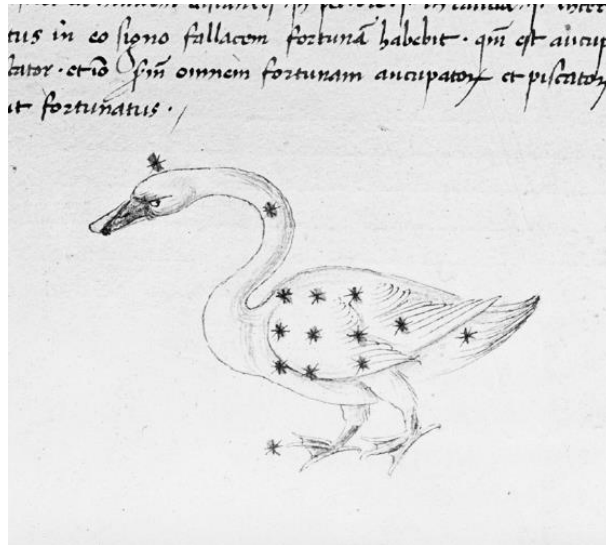 tus in eo signo fallacem fortunā habebit · qm̄ est aucup
cator · et iō sm̄ omnem fortunam aucupatoꝝ et piscatoꝝ
it fortunatus ·